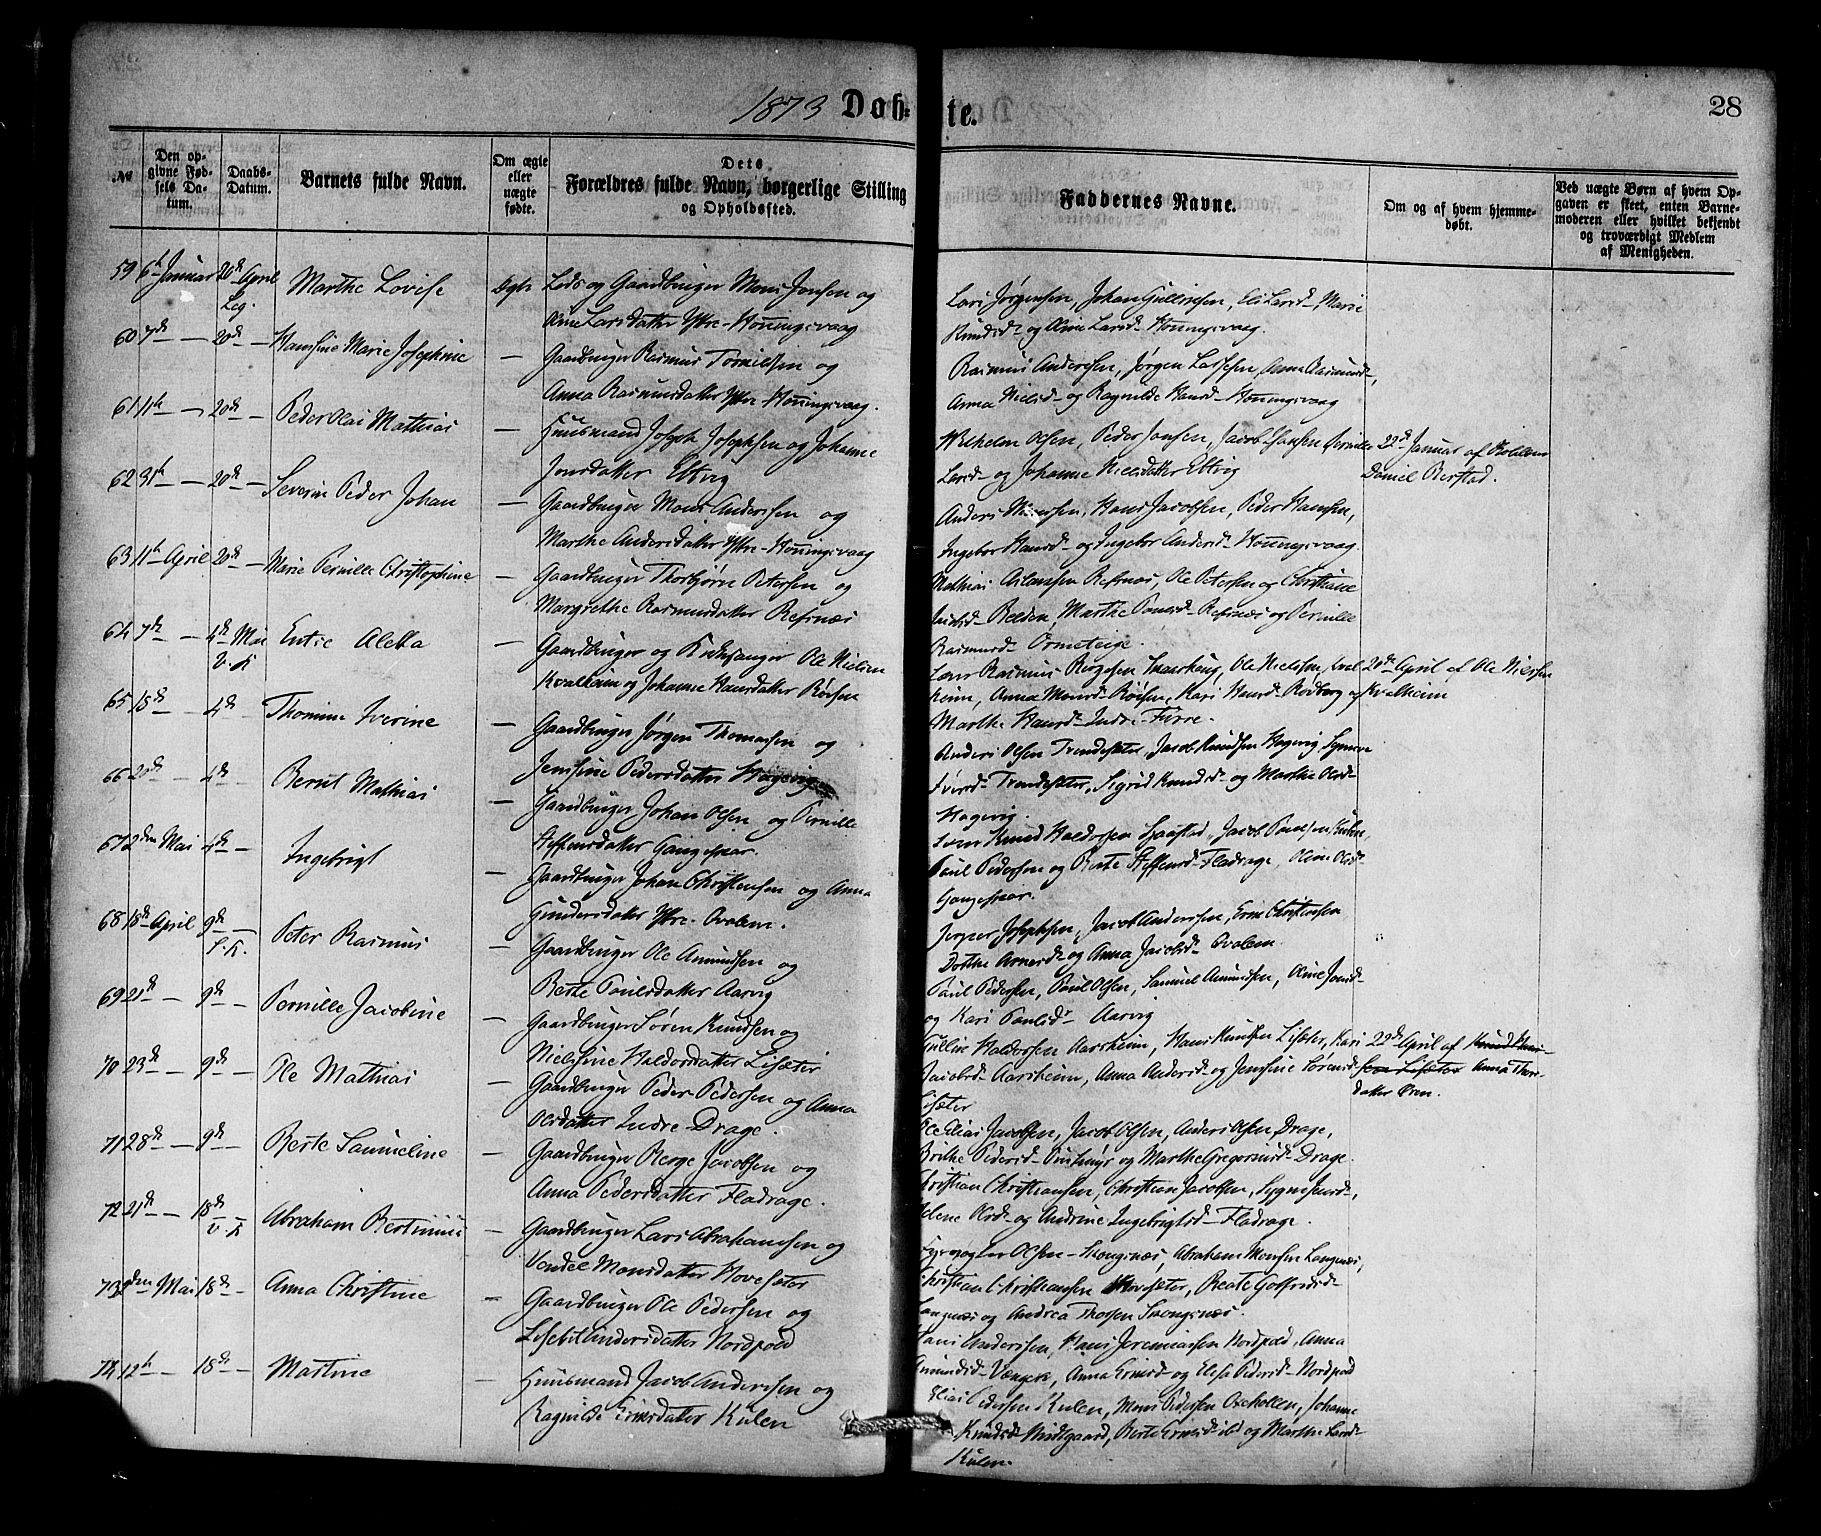 1873 Døbte. 28
№
Den opgivne Fødsels Datum.
Daabs-Datum.
Barnets fulde Navn.
Om ægte eller uægte fødte.
Dets Forældres fulde Navn, borgerlige Stilling og Opholdssted.
Faddernes Navne.
Om og af hvem hjemmedøbt.
Ved uægte Børn af hvem Opgaven er skeet, enten Barnemoderen eller hvilket bekjendt og troværdigt Medlem af Menigheden.
59 6th Januar 20de April Marthe Lovise Gaardbruger Mons Jonsen og
Larsdatter Ytre-Honningsvaag
Lars Jørgensen, Johan Larsd- Marie
Knudsd- og Oline Larsd- Honningsvaag.
60 7de — 20de — Hansine Marie Josephine — Gaardbruger Rasmus og
Anna Rasmusdatter Ytre-Honningsvaag.
Rasmus Andersen, Jørgen Larsen, Anne Rasmusd-,
Anna Nielsd- og Ragnilde Hansd- Honningsvaag
61 11th — 20de — Peder Olai Mathias — Huusmand Joseph Josephsen og Johanne
Jonsdatter Ettvig
Wilhelm Olsen, Peder Jonsen, Jacob Hansen Pernille
Larsd- og Johanne Nielsdatter Ettvig
22de Januar af
Daniel Berstad.
62 31th — 20de — Severin Peder Johan — Gaardbruger Mons Andersen og
Marthe Andersdatter Ytre-Honningsvaag
Anders Hansen, Hans Jacobsen, Peder Hansen,
Ingebor Hansd- og Ingebor Andersd- Honningsvaag.
63 11th April 20de — Marie Pernille Christophine — Gaardbruger Thorbjørn Petersen og
Margrethe Rasmusdatter Refsnæs
Mathias Aslaksen Refsnæs, Ole Petersen og Christiane
Marthe Refsnæs og Pernille
Rasmusd- Ormeteige.
64 7de — 4de Mai Entse Aletta — Gaardbruger og Kirkesanger Ole Nielsen
Kvalheim og Johanne Hansdatter Røisen
v. K
Rasmus Børgesen Ole Nielsen, Kval
heim, Anna Monsd- Røisen, Kari Hansd- Rødberg og
Marthe Hansd- Indre-Furre.
20de April af Ole Nielsen
Kvalheim
65 18de — 4de — Thomine Iverine — Gaardbruger Jørgen Thomassen og
Jensine Pedersdatter Hagevig
Anders Olsen Trendesæter, Jacob Knudsen Hagevig, Synneve
Iversd- Trendesæter, Sigrid Knudsd- og Marthe Olsd-
Hagevig.
66 20de — 4de — Bernt Mathias — Gaardbruger Johan Olsen og Pernille
Steffensdatter Gangesskar.
Knud Haldorsen Jacob
Paul Pedersen og Berte Steffensd- Fladrage, Oline Olsd-
Gangesskar.
67 2den Mai 4de — Ingebrigt — Gaardbruger Johan Christensen og Anna
Gundersdatter Ytre-Hvalem.
Jesper Josephsen, Jacob Andersen, Christensen
Dorthe Arnesd- og Anna Jacobsd-
68 18de April 9de — Peter Rasmus — Gaardbruger Ole Amundsen og
Berte Paulsdatter Aarvig
S. K.
Paul Pedersen, Paul Olsen, Samuel Amundsen, Oline Jonsd-
og Kari Paulsd- Aarvig
69 21de — 9de — Pernille Jacobine — Gaardbruger Søren Knudsen og
Nielsine Haldorsdatter Lisæter
Haldorsen Aarsheim, Hans Knutsen Lisæter, Kari
Jacobsd- Aarsheim, Anna Andersd- og Jensine Sørensd-
Lisæter
29de April af
Lisæter Anna Thors-
datter Øren.
70 23de — 9de — Ole Mathias — Gaardbruger Peder Pedersen og Anna
Olsdatter Indre-Drage.
Ole Elias Jacobsen, Jacob Olsen, Anders Olsen Drage,
Brithe Pedersd- og Marthe Gregoriusd- Drage.
71 28de — 9de — Berte Samueline — Gaardbruger Børge Jacobsen og
Anna Pedersdatter Fladrage.
Christian Christiansen, Christen Jacobsen, Sygne Jensd-,
Helene Olsd- og Andrine Ingebrigtsd- Fladrage.
72 21de — 18de — Abraham Bertinius — Gaardbruger Lars Abrahamsen og
Vendel Monsdatter Hovesæter
v. K
Fyrvogter Olsen- Skongsnæs, Abraham Monsen Langenæs,
Christian Christiansen Hovesæter, Beate Gotfredsd-
Langnæs og Andrea Thorsen Skongsnæs.
73 den Mai 18de — Anna Christine — Gaardbruger Ole Pedersen og
Lisebet Andersdatter Nordpold
Hans Andersen, Hans Jeremiassen Nordpold, Anna
Amundsd- Vængsø, Anna Ermsd- og Elesa Pedersd- Nordpold
74 12th — 18de — Martine — Huusmand Jacob Andersen og
Ragnilde Ermsdatter Kulen
Elias Pedersen Kulen, Mons Pedersen Oxeholten, Johanne
Knudsd- Midtgaard, Berte Ermsd- ibd og Marthe Larsd-
Kulen.